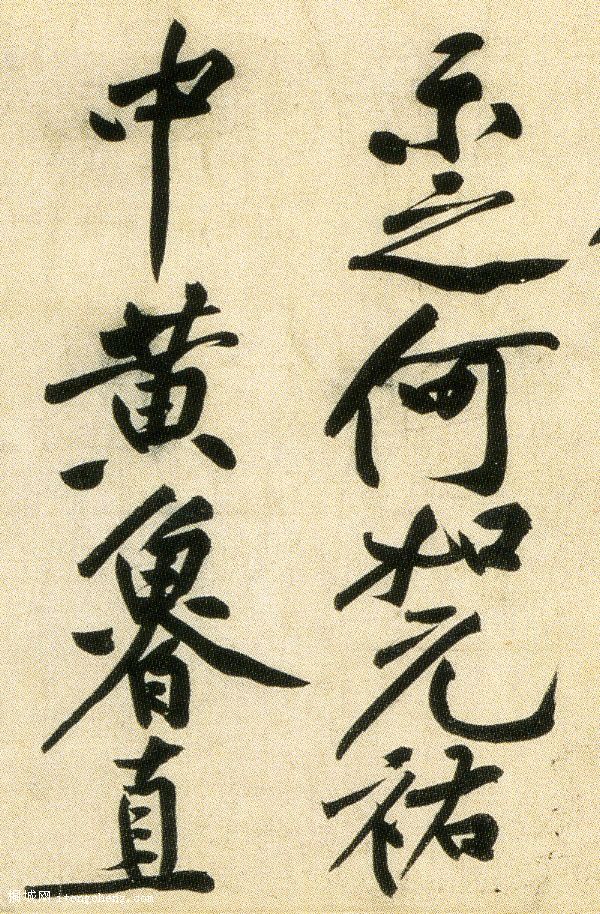 示之何如元祐
中黃魯直